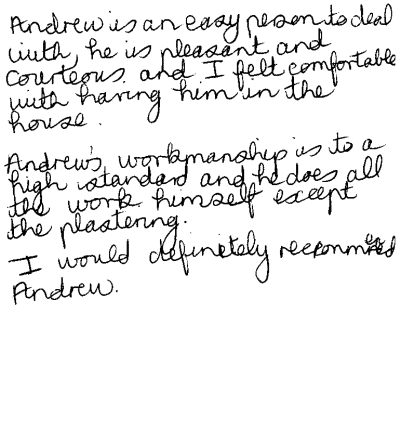 Andrew is an easy person to deal
with, he is pleasant and
courteous. and I felt comfortable
with having him in the
house.
Andrew's workmanship is to a
high standard and he does all
the work himself except
the plastering.
I would definitely recommend
Andrew.